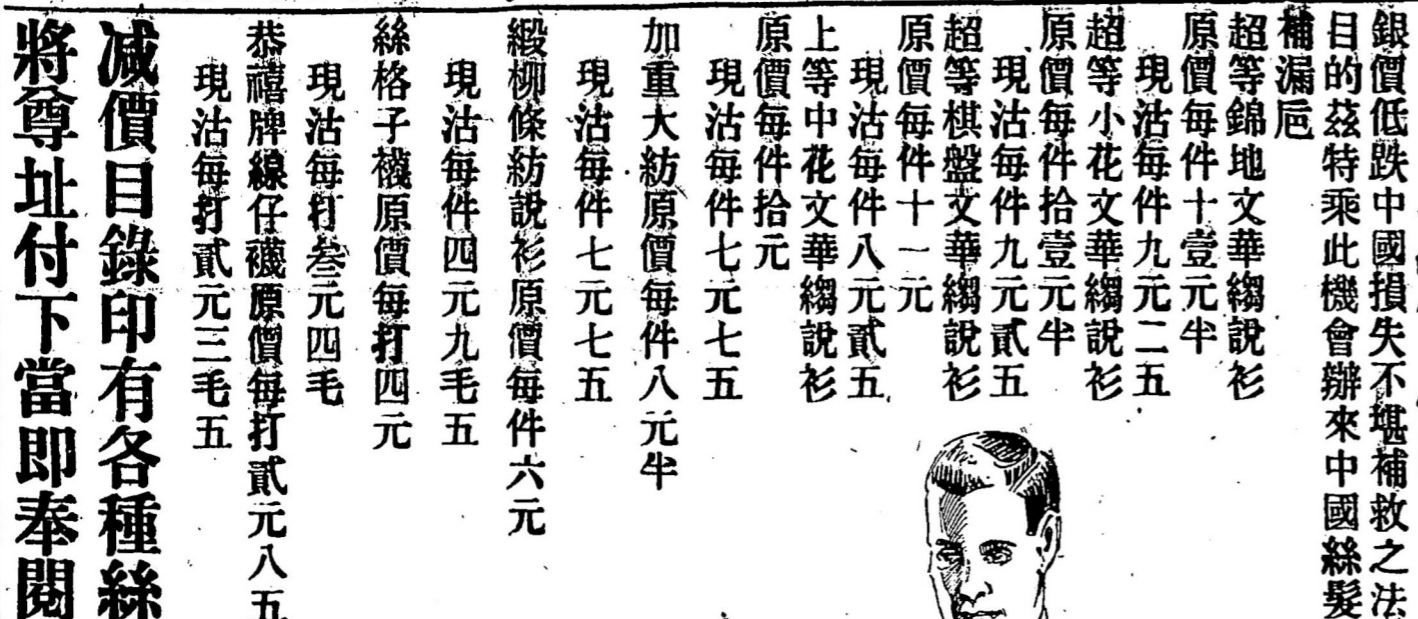 銀價低跌中國損失不堪補救之法
目的茲特乘此機會辦來中國絲髮
補漏巵
超等錦地文華縐說衫
原價每件十壹元半
現沽每件九元二五
超等小花文華縐說衫
原價每件拾壹元半
現沽每件九元貳五
超等棋盤文華縐說衫
原價每件十一元
現沽每件八元貳五
上等中花文華縐說衫
原價每件拾元
現沽每件七元七五
加重大紡原價每件八元半
現沽每件七元七五
緞柳條紡說衫原價每件六元
現沽每件四元九毛五
絲格子襪原價每打四元
現沽每打叁元四毛
恭禧牌線仔襪原價每打貳元八五
現沽每打貳元三毛五
減價目錄印有各種絲
將尊址付下當即奉閱